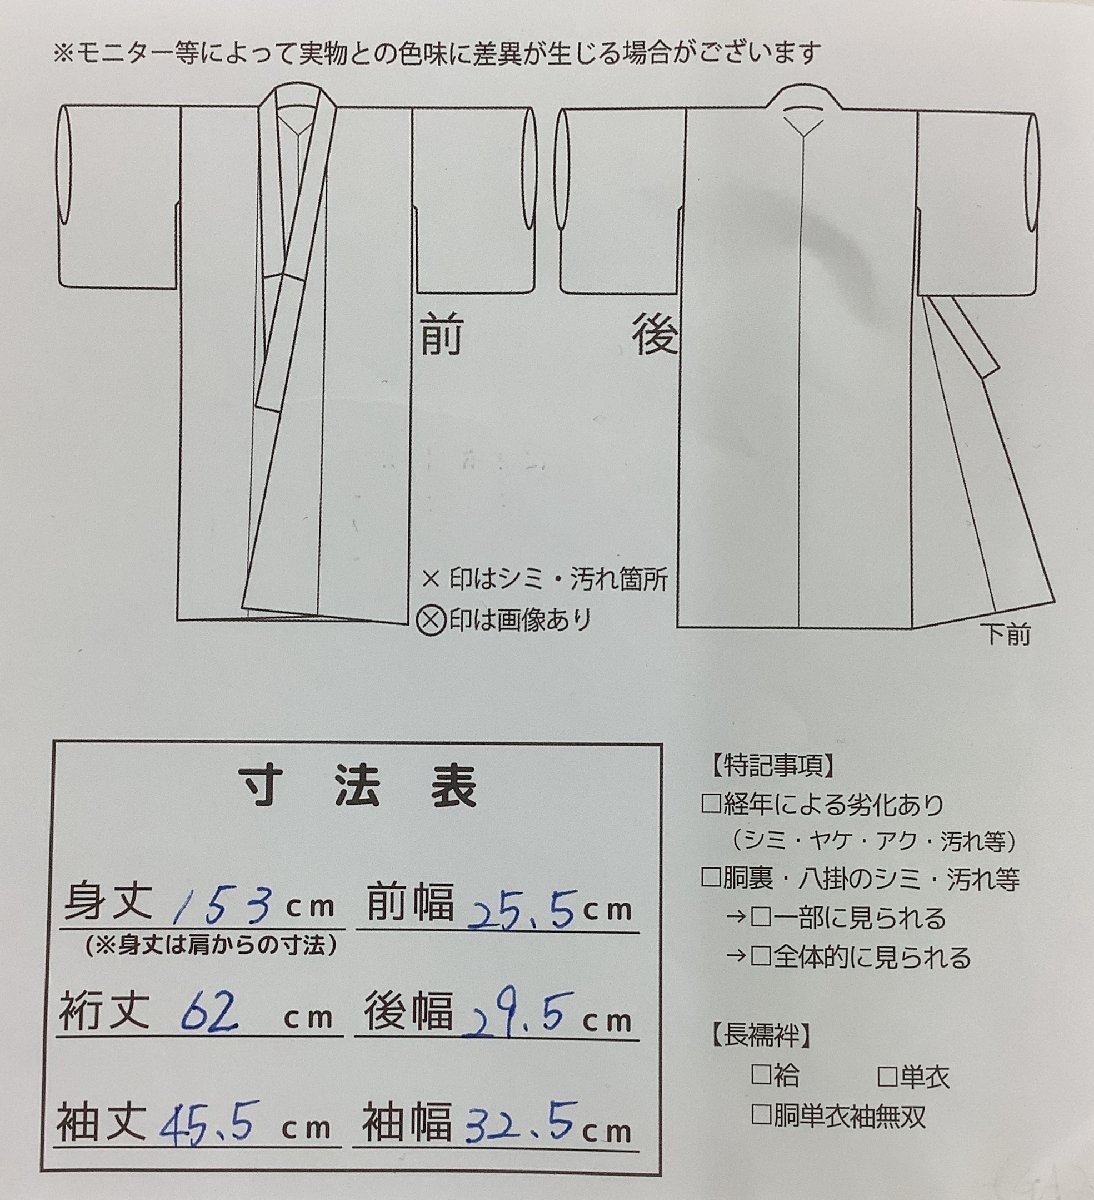 ※モニター等によって実物との色味に差異が生じる場合がございます
前
後
×印はシミ・汚れ箇所
Ⓧ印は画像あり
下前
寸法表
身丈 153 cm 前幅 25.5 cm
(※身丈は肩からの寸法)
裄丈 62 cm 後幅 29.5 cm
袖丈 45.5 cm 袖幅 32.5 cm
【特記事項】
□経年による劣化あり
（シミ・ヤケ・アク・汚れ等）
□胴裏・八掛のシミ・汚れ等
→□一部に見られる
→□全体的に見られる
【長襦袢】
□袷 □単衣
□胴単衣袖無双